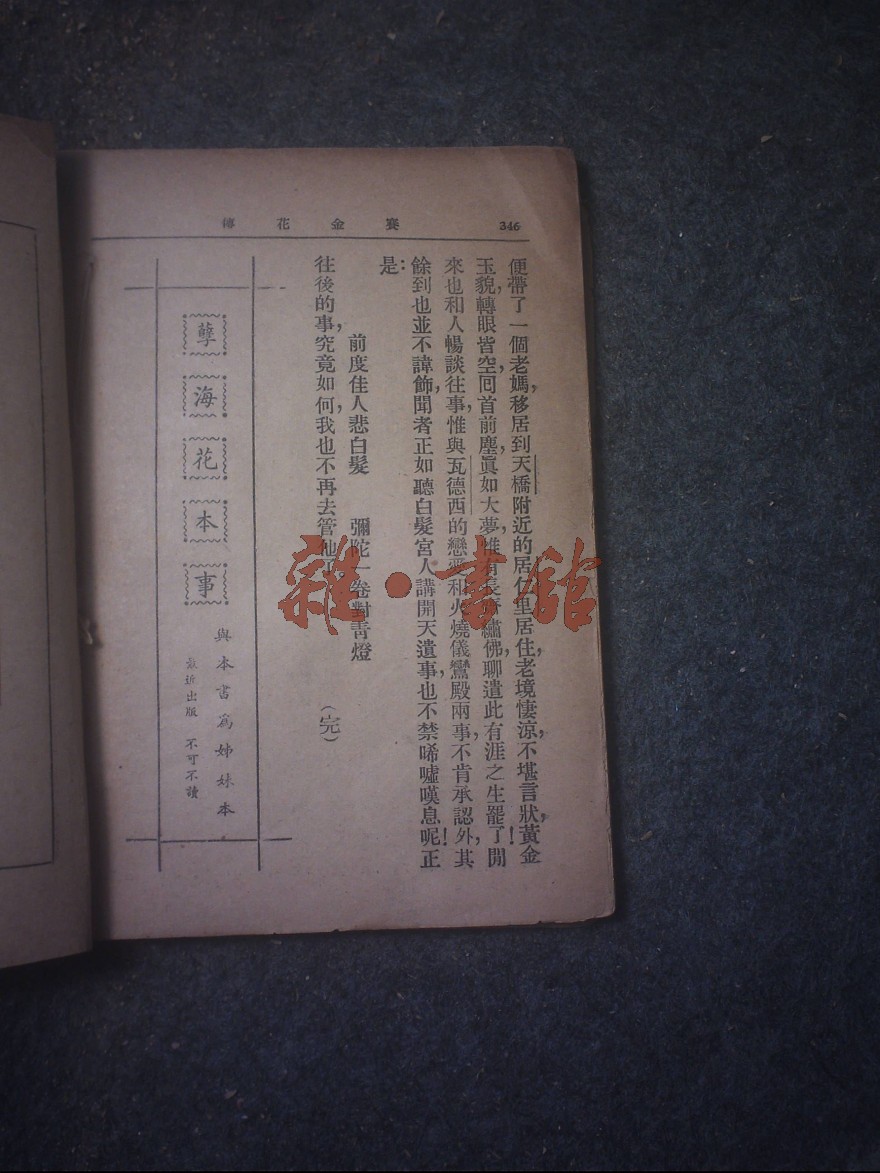 346
賽金花傳
便帶了一個老媽，移居到天橋附近的居仁里居住，老境悽涼，不堪言狀，黃金
玉貌，轉眼皆空，回首前塵，眞如大夢，惟有長齋繡佛，聊遣此有涯之生罷了！閒
來也和人暢談往事，惟與瓦德西的戀愛和火燒儀鸞殿兩事，不肯承認外，其
餘到也並不諱飾，聞者正如聽白髮宮人講開天遺事，也不禁唏噓嘆息呢！正
是：
前度佳人悲白髮　彌陀一卷對靑燈
往後的事，究竟如何，我也不再去管他了
（完）
孽海花本事
與本書爲姊妹本
最近出版　不可不讀
雜·書館